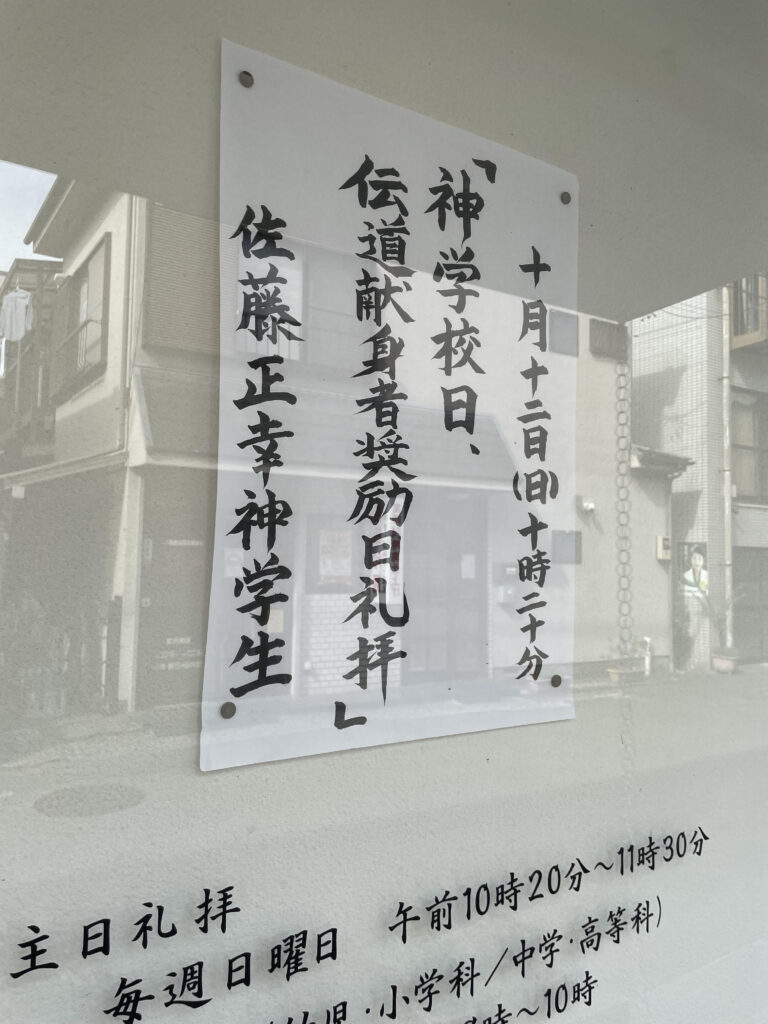 十月十二日(日)十時二十分
「神学校日、
伝道献身者奨励日礼拝」
佐藤正幸神学生
主日礼拝
毎週日曜日 午前10時20分〜11時30分
児・小学科／中学・高等科)
時〜10時